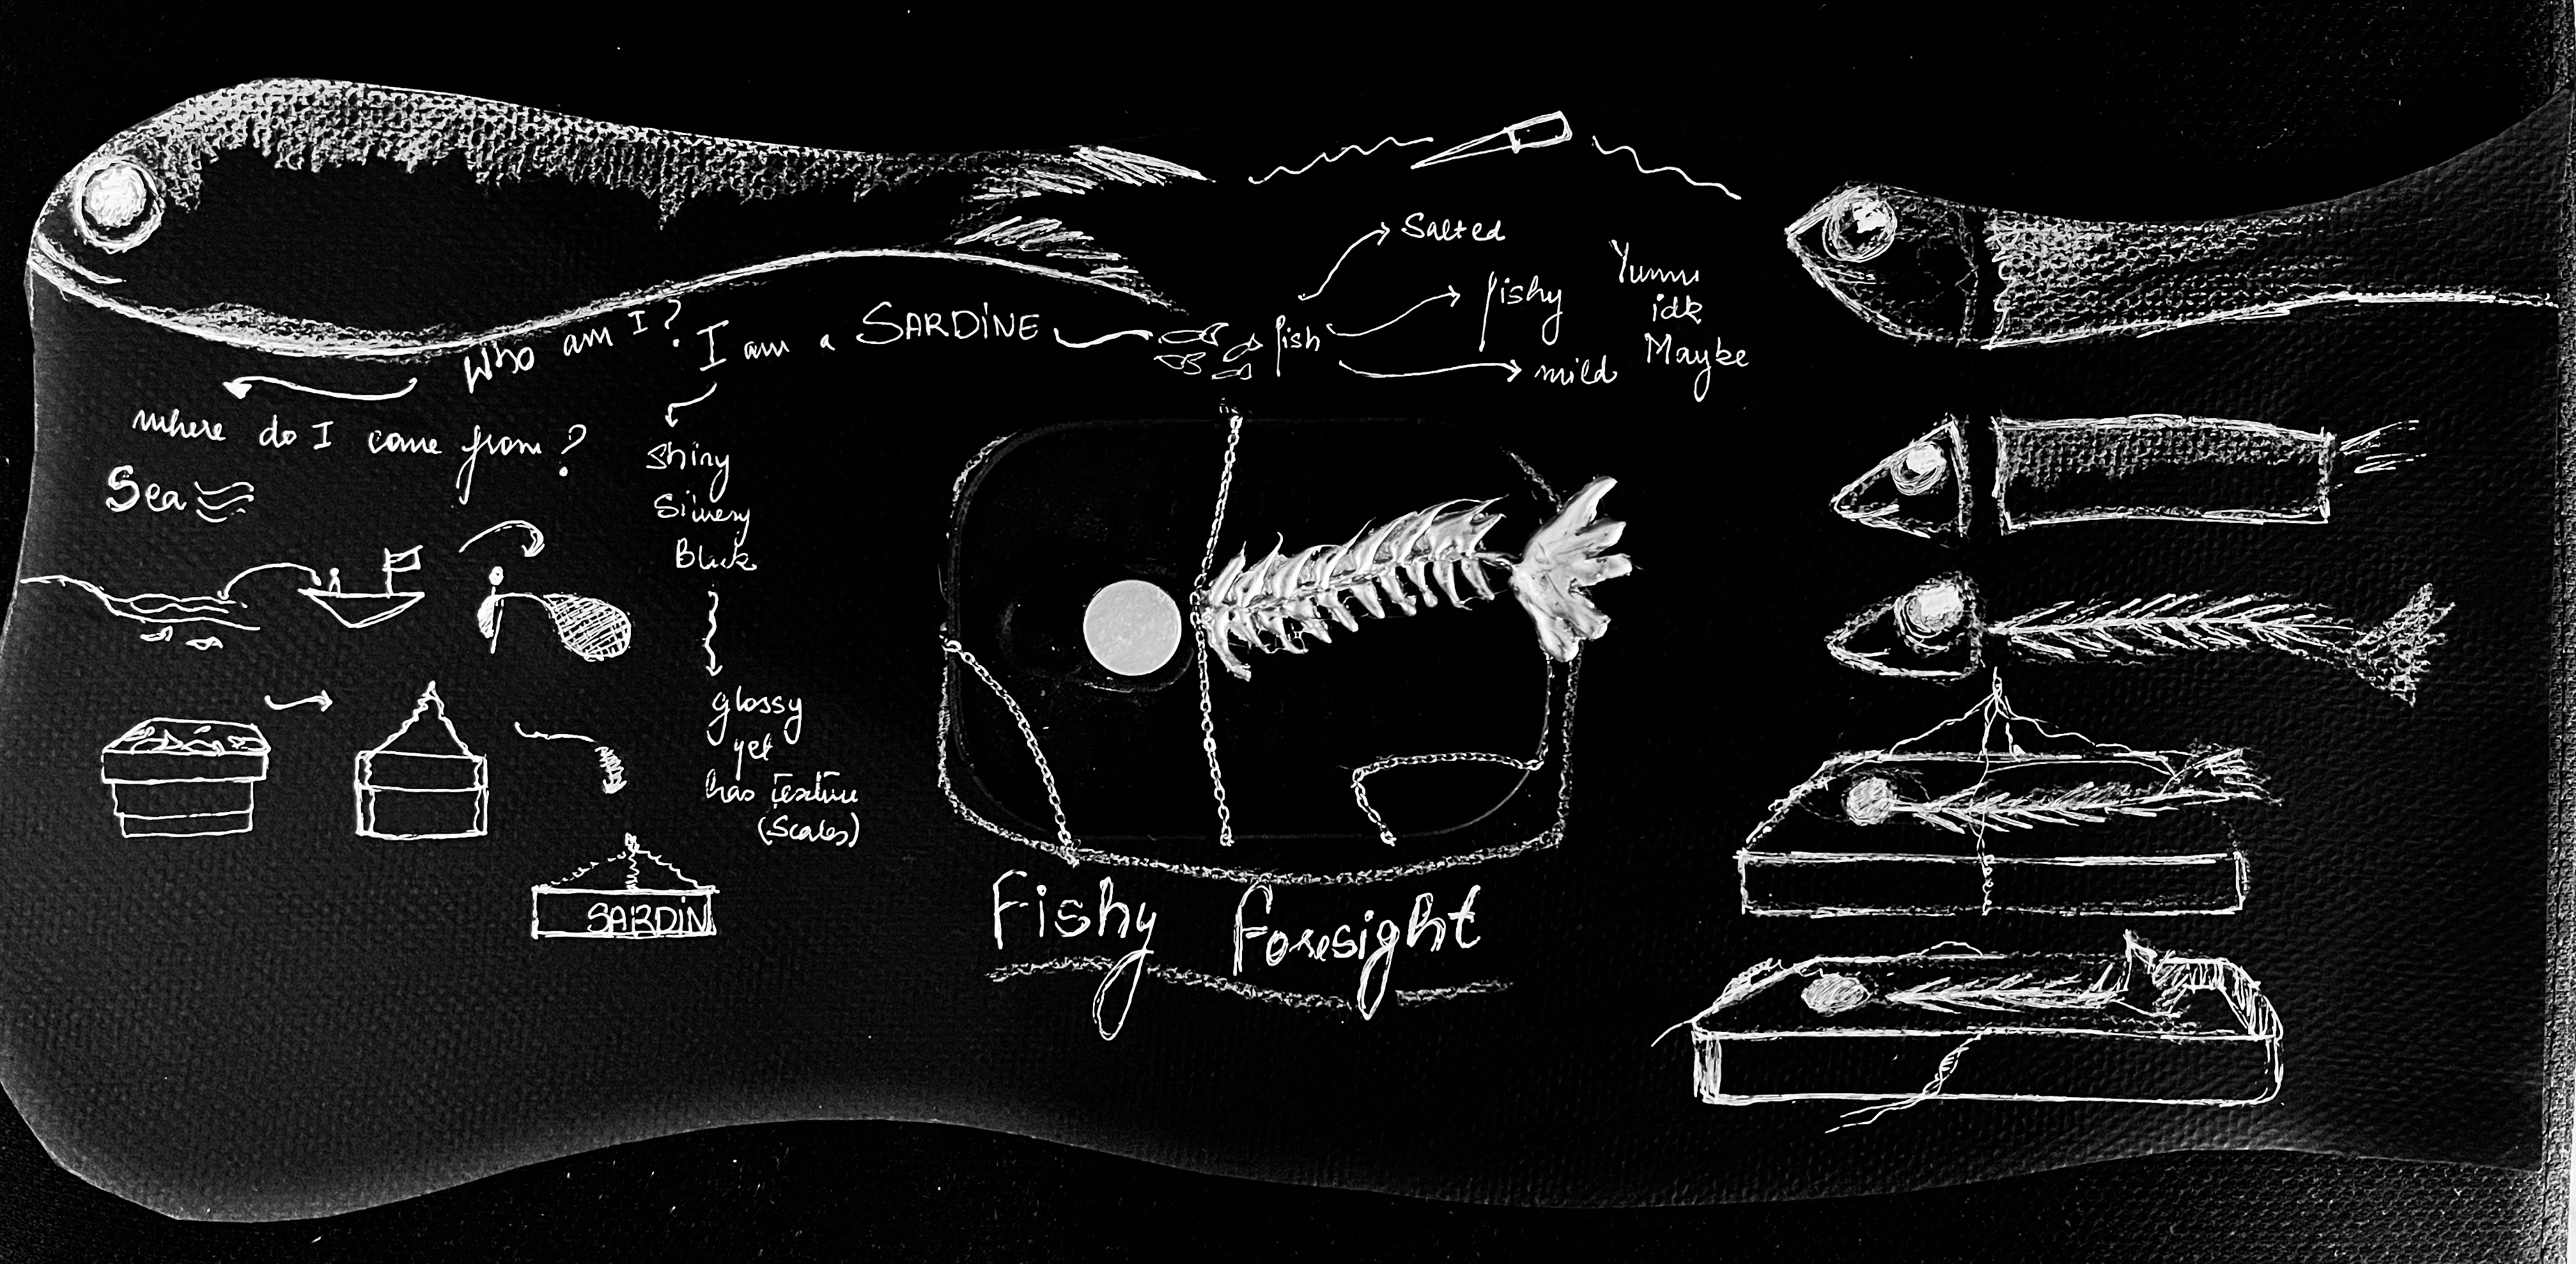 Who am I?
I am a SARDINE
fish
Salted
fishy
mild
Yumm
idk
Maybe
where do I come from?
Sea
Shiny
Black
glossy
yet
has Texture
(Scales)
SARDIN
Fishy Foresight